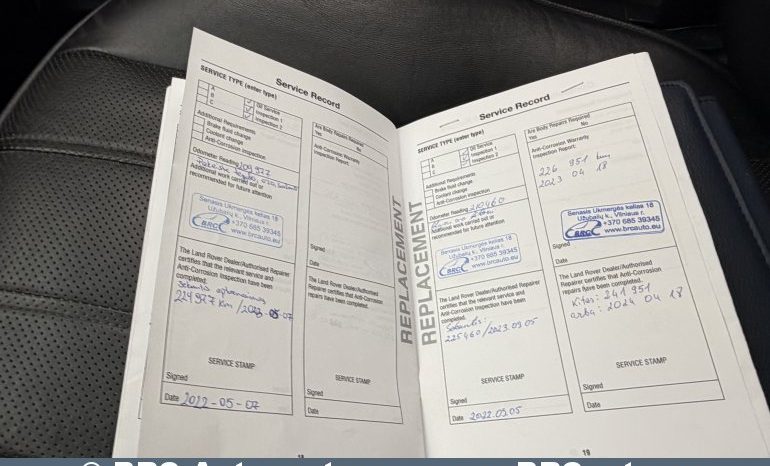 Service Record
SERVICE TYPE (enter type)
A
B
C
Oil Service
Inspection 1
Inspection 2
Additional Requirements
Brake fluid change
Coolant change
Anti-Corrosion inspection
Odometer Reading 209977
Additional work carried out or
recommended for future attention
Senasis Ukmergės kelias 18
Užubalių k., Vilniaus r.
+370 685 39345
BRC
www.brcauto.eu
The Land Rover Dealer/Authorised Repairer
certifies that the relevant service and
Anti-Corrosion Inspection have been
completed:
224977 km /2023-05-07
SERVICE STAMP
Signed
Date 2022-05-07
Are Body Repairs Required
Yes No
Anti-Corrosion Warranty
Inspection Report:
Signed
Date
The Land Rover Dealer/Authorised
Repairer certifies that Anti-Corrosion
repairs have been completed.
SERVICE STAMP
Signed
Date
REPLACEMENT
REPLACEMENT
Service Record
SERVICE TYPE (enter type)
A
B
C
Oil Service
Inspection 1
Inspection 2
Additional Requirements
Brake fluid change
Coolant change
Anti-Corrosion inspection
Odometer Reading 210460
Additional work carried out or
recommended for future attention
Senasis Ukmergės kelias 18
Užubalių k., Vilniaus r.
+370 685 39345
BRC
www.brcauto.eu
The Land Rover Dealer/Authorised Repairer
certifies that the relevant service and
Anti-Corrosion Inspection have been
completed.
225460/2023.03.05
SERVICE STAMP
Signed
Date 2022.03.05
Are Body Repairs Required
Yes No
Anti-Corrosion Warranty
Inspection Report:
226 951 km
2023 04 18
Senasis Ukmergės kelias 18
Užubalių k., Vilniaus r.
+370 685 39345
BRC
www.brcauto.eu
Signed
Date
The Land Rover Dealer/Authorised
Repairer certifies that Anti-Corrosion
repairs have been completed.
Kitas: 241951
arba: 2024 04 18
SERVICE STAMP
Signed
Date
18
19